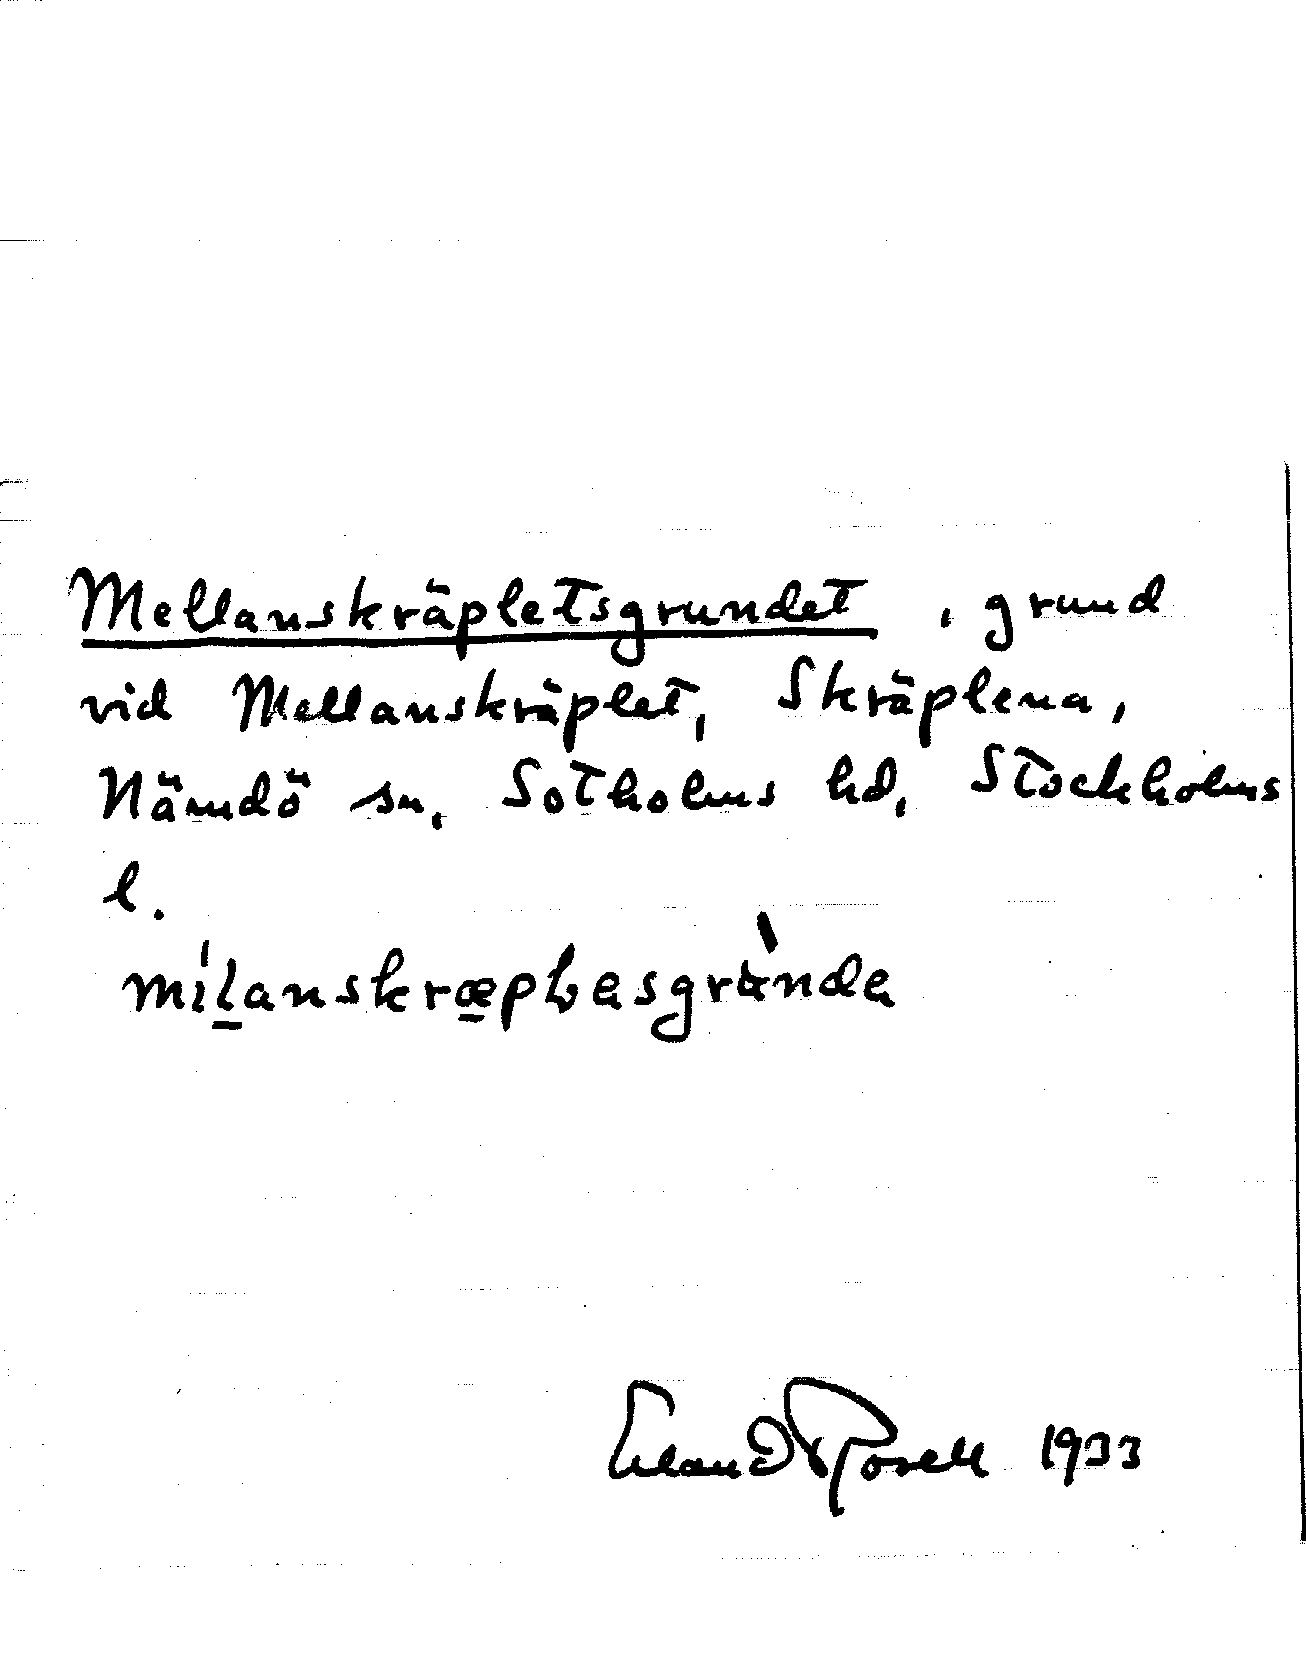 Mellanskräpletsgrundet, grund
vid Mellanskräplet, Skräplena,
Nämdö sn, Sotholms hd, Stockholms
l.
Erland Rosell 1933